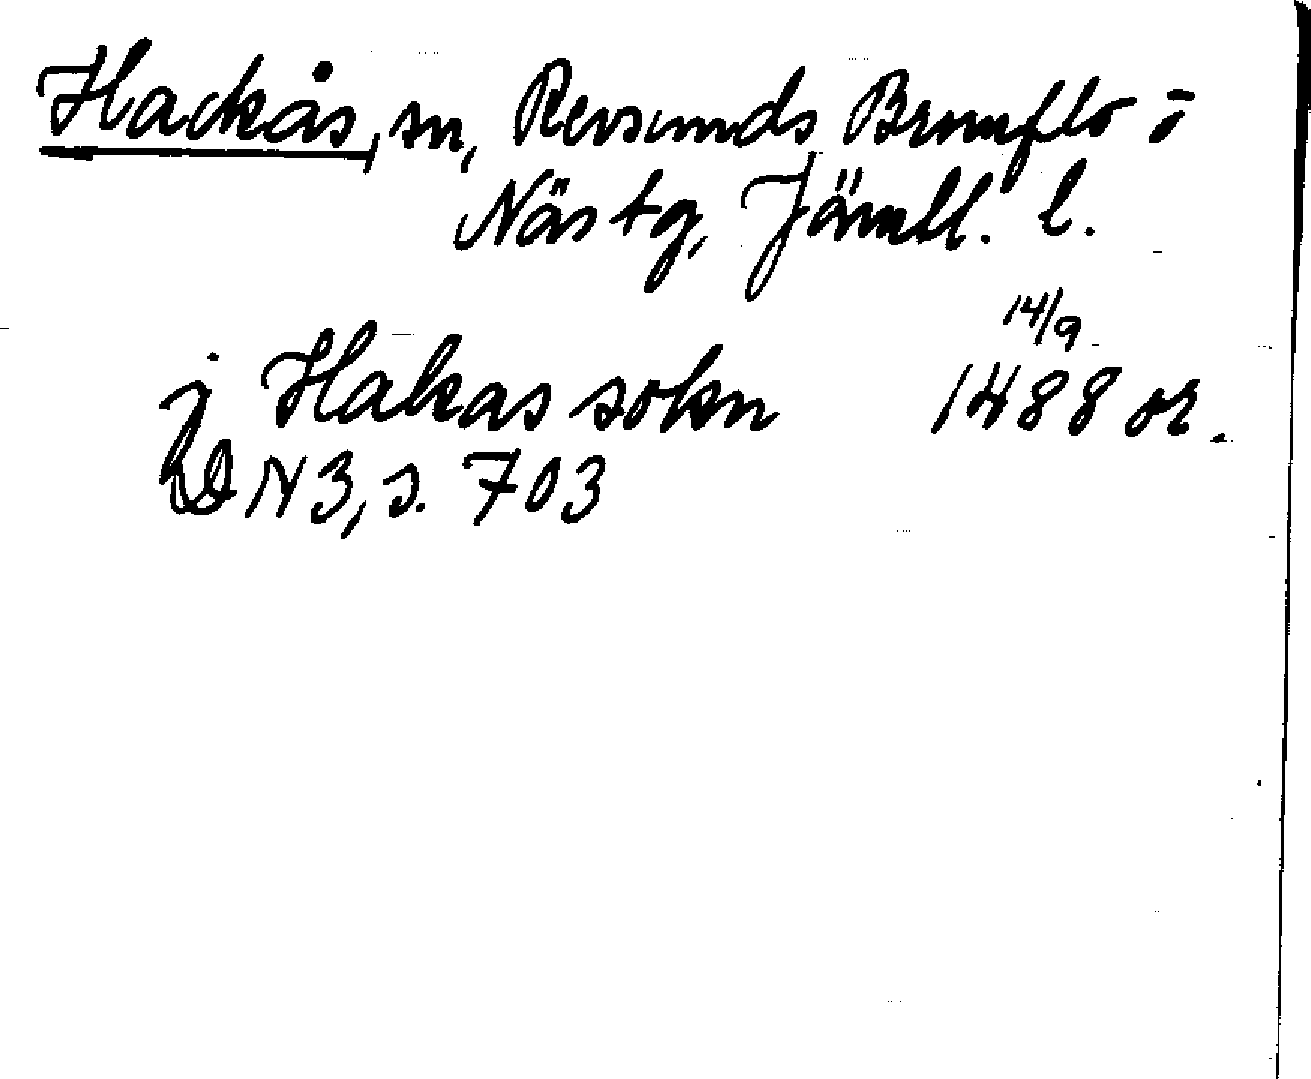 Hackås, sn, Revsunds Brunflo o
Näs tg, Jämtl. l.
j Hakas sokn 14/9 1488 or.
DN 3, s. 703